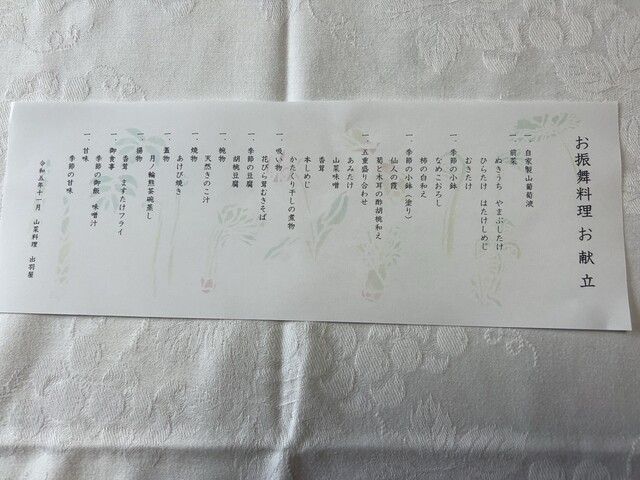 お振舞料理 お献立
一、自家製山葡萄液
一、前菜
ぬきうち やまぶしたけ
ひらたけ はたけしめじ
おきたけ
一、季節の小鉢
なめこおろし
柿の白和え
一、季節の小鉢(塗り)
仙人の霞
菊と木耳の酢胡桃和え
一、五重盛り合わせ
あみたけ
山菜味噌
香茸
本しめじ
かたくり干しの煮物
一、吸い物
花びら茸むきそば
一、季節の豆腐
胡桃豆腐
一、椀物
天然きのこ汁
一、焼物
あけび焼き
一、蓋物
月ノ輪熊茶碗蒸し
一、揚物
香茸 ますたけフライ
一、御食事
季節の御飯 味噌汁
一、甘味
季節の甘味
令和五年十一月 山菜料理 出羽屋